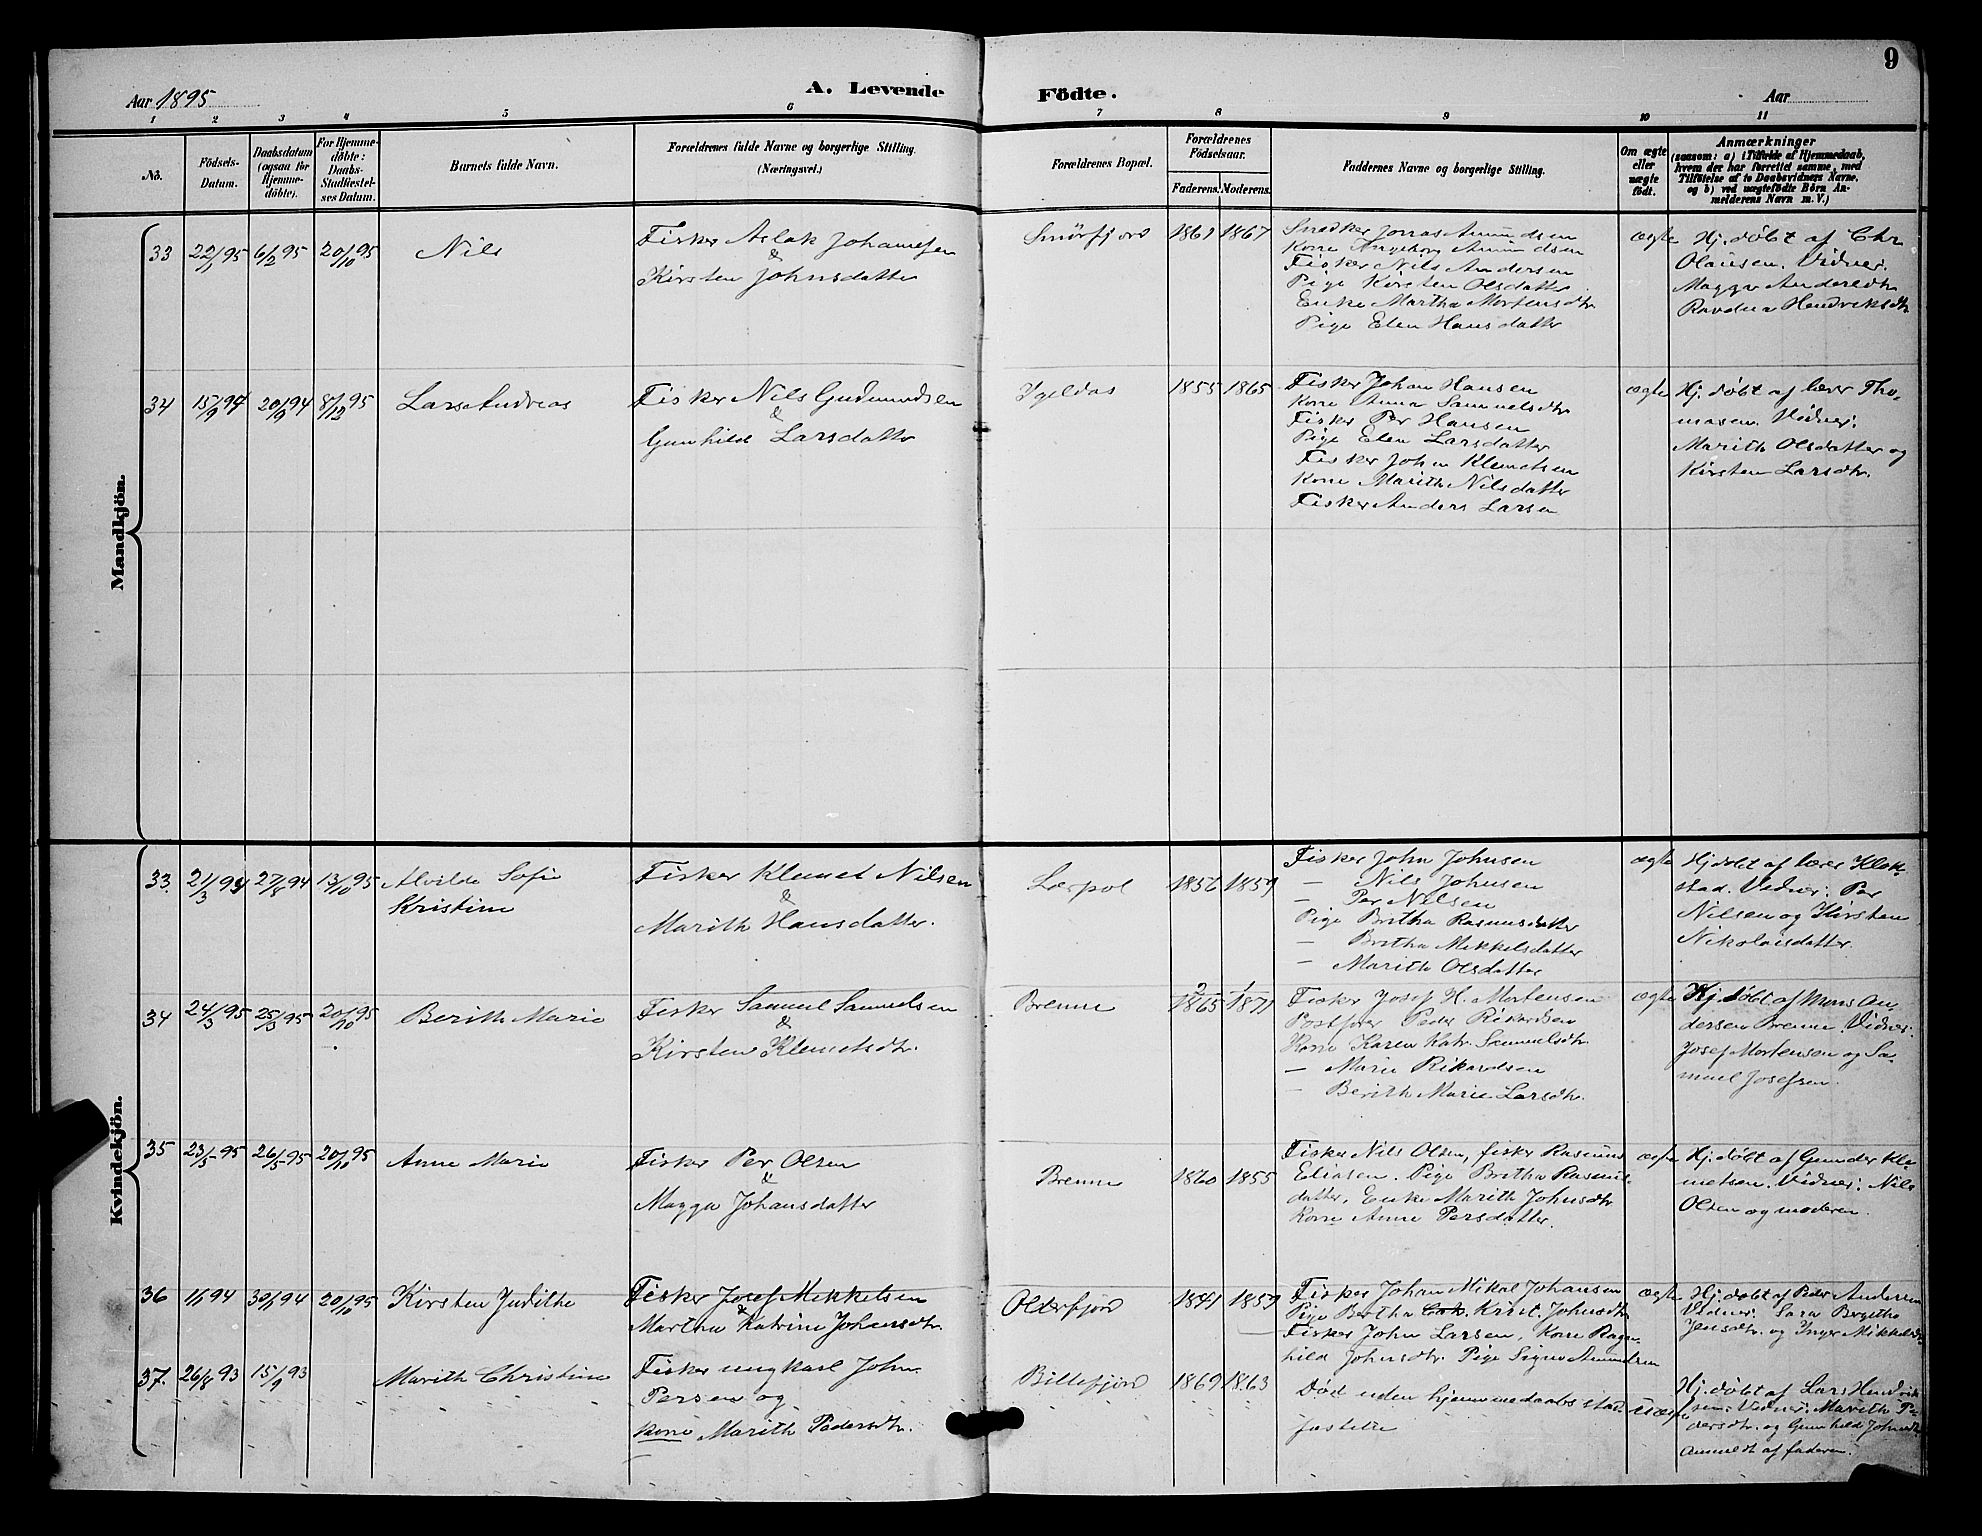 9
Aar 1895
A. Levende
Födte.
Aar
1 2 3 4 5 6 7 8 9 10 11
No.
Födsels-
Datum.
Daabsdatum
(ogsaa for
Hjemme-
döbte).
For Hjemme-
döbte:
Daabs-
Stadfæstel-
ses Datum.
Barnets fulde Navn.
Forældrenes fulde Navne og borgerlige Stilling.
(Næringsvei.)
Forældrenes Bopæl.
Forældrenes
Födselsaar.
Faderens.
Moderens.
Faddernes Navne og borgerlige Stilling.
Om ægte
eller
uægte
födt.
Anmærkninger
(saasom: a) i Tilfælde af Hjemmedaab,
hvem der har forrettet samme, med
Tilföielse af to Daabsvidners Navne,
og b) ved uægtefödte Börn An-
melderens Navn m. V.)
Mandkjön.
33
22/1 95
6/2 95
20/10 95
Nils
Fisker Aslak Johannesen
&
Kirsten Johnsdatter
Smörfjord
1861
1867
Snedker Jonas Amundsen
Kone Ingeborg Amundsen
Fisker Nils Andersen
Pige Kirsten Olsdatter
Enke Martha Mortensdtr.
Pige Elen Hansdatter
ægte
Hj. döbt af Chr.
Olausen. Vidner:
Magga Andersdtr.
Ravdna Hendriksdtr.
34
15/9 94
20/9 94
8/12 95
Lars Andreas
Fisker Nils Gudmundsen
&
Gunhild Larsdatter
Igeldas
1855
1865
Fisker Johan Hansen
Kone Anna Samuelsdtr.
Fisker Per Hansen
Pige Elen Larsdatter
Fisker John Klemetsen
Kone Marith Nilsdatter
Fisker Anders Larsen
ægte
Hj. döbt af lærer Tho-
masen. Vidner:
Marith Olsdatter og
Kirsten Larsdtr.
Kvindekjön.
33.
21/3 94
27/8 94
13/10 95
Alvilde Sofie
Kristine
Fisker Klemet Nilsen
&
Marith Hansdatter.
Lerpol
1856
1859
Fisker John Johnsen
— Nils Johnsen
— Per Nilsen
Pige Britha Rasmusdatter
— Britha Mikkelsdatter
— Marith Olsdatter
ægte
Hj. döbt af lærer Klok-
stad. Vidner: Per
Nilsen og Kirsten
Nikolaisdatter.
34
24/3 95
25/3 95
20/10 95
Berith Marie
Fisker Samuel Samuelsen
&
Kirsten Klemetsdtr.
Brenne
2
1865
1
1871
Fisker Josef H. Mortensen
Postfører Peder Rikardsen
Kone Karen Katr. Samuelsdtr.
— Marie Rikardsen
— Berith Marie Larsdtr.
ægte
Hj. döbt af Mons An-
dersen Brenne. Vidner:
Josef Mortensen og Sa-
muel Josefsen.
35
23/5 95
26/5 95
20/10 95
Anne Marie
Fisker Per Olsen
&
Magga Johansdatter
Brenne
1860
1855
Fisker Nils Olsen, fisker Rasmus
Eliasen. Pige Britha Rasmus-
datter, Enke Marith Johnsdtr.
Kone Anne Persdatter.
ægte
Hj. döbt af Gunder Kle-
metsen. Vidner: Nils
Olsen og moderen.
36
1/1 94
30/1 94
20/10 95
Kirsten Judithe
Fisker Josef Mikkelsen
&
Martha Katrine Johansdtr.
Olderfjord
1841
1859
Fisker Johan Mikal Johansen
Pige Bertha Krist. Johnsdtr.
Fisker John Larsen, Kone Ragn-
hild Johnsdtr. Pige Signe Amundsen
ægte
Hj. döbt af Peder Andersen
Vidner: Sara Bergitha
Jensdtr. og Inger Mikkelsdtr.
37.
26/8 93
15/9 93
Marith Christine
Fisker ungkarl John
Persen og
kone Marith Pedersdtr.
Billefjord
1869
1863
Död uden hjemmedaabs stad-
fæstelse
uægte
Hj. döbt af Lars Hendrik-
sen. Vidner: Marith Pe-
dersdtr. og Gunhild Johnsdtr.
anmeldt af faderen.